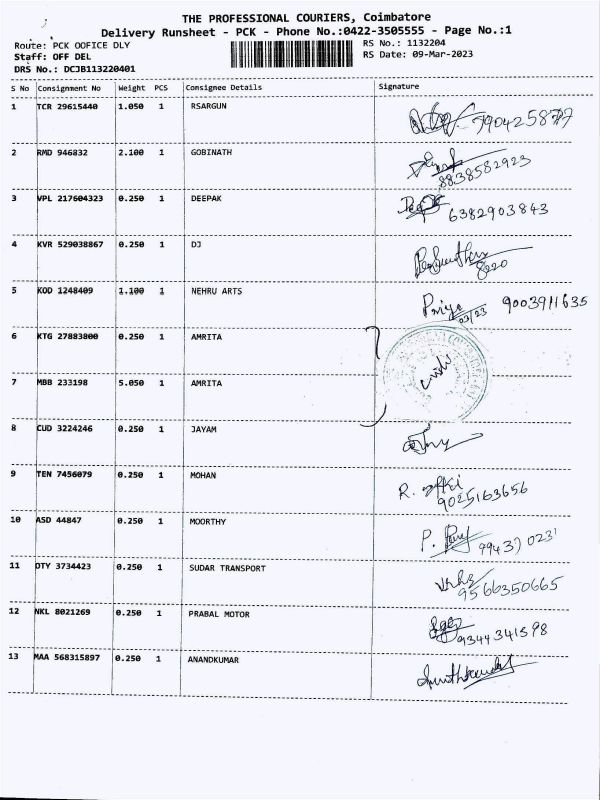 THE PROFESSIONAL COURIERS, Coimbatore
Delivery Runsheet - PCK - Phone No.:0422-3505555 - Page No.:1
Route: PCK OOFICE DLY RS No.: 1132204
Staff: OFF DEL RS Date: 09-Mar-2023
DRS No.: DCJB113220401
S No Consignment No Weight PCS Consignee Details Signature
1 TCR 29615440 1.050 1 RSARGUN
2 RMD 946832 2.100 1 GOBINATH
8838582923
3 VPL 217604323 0.250 1 DEEPAK
6382903843
4 KVR 529038867 0.250 1 DJ
8220
5 KOD 1248409 1.100 1 NEHRU ARTS Priya 9003911635
6 KTG 27883800 0.250 1 AMRITA
7 MBB 233198 5.050 1 AMRITA
8 CUD 3224246 0.250 1 JAYAM
9 TEN 7456079 0.250 1 MOHAN R.
9025163656
10 ASD 44847 0.250 1 MOORTHY P.
11 DTY 3734423 0.250 1 SUDAR TRANSPORT
9566350665
12 NKL 8021269 0.250 1 PRABAL MOTOR
9344341598
13 MAA 568315897 0.250 1 ANANDKUMAR